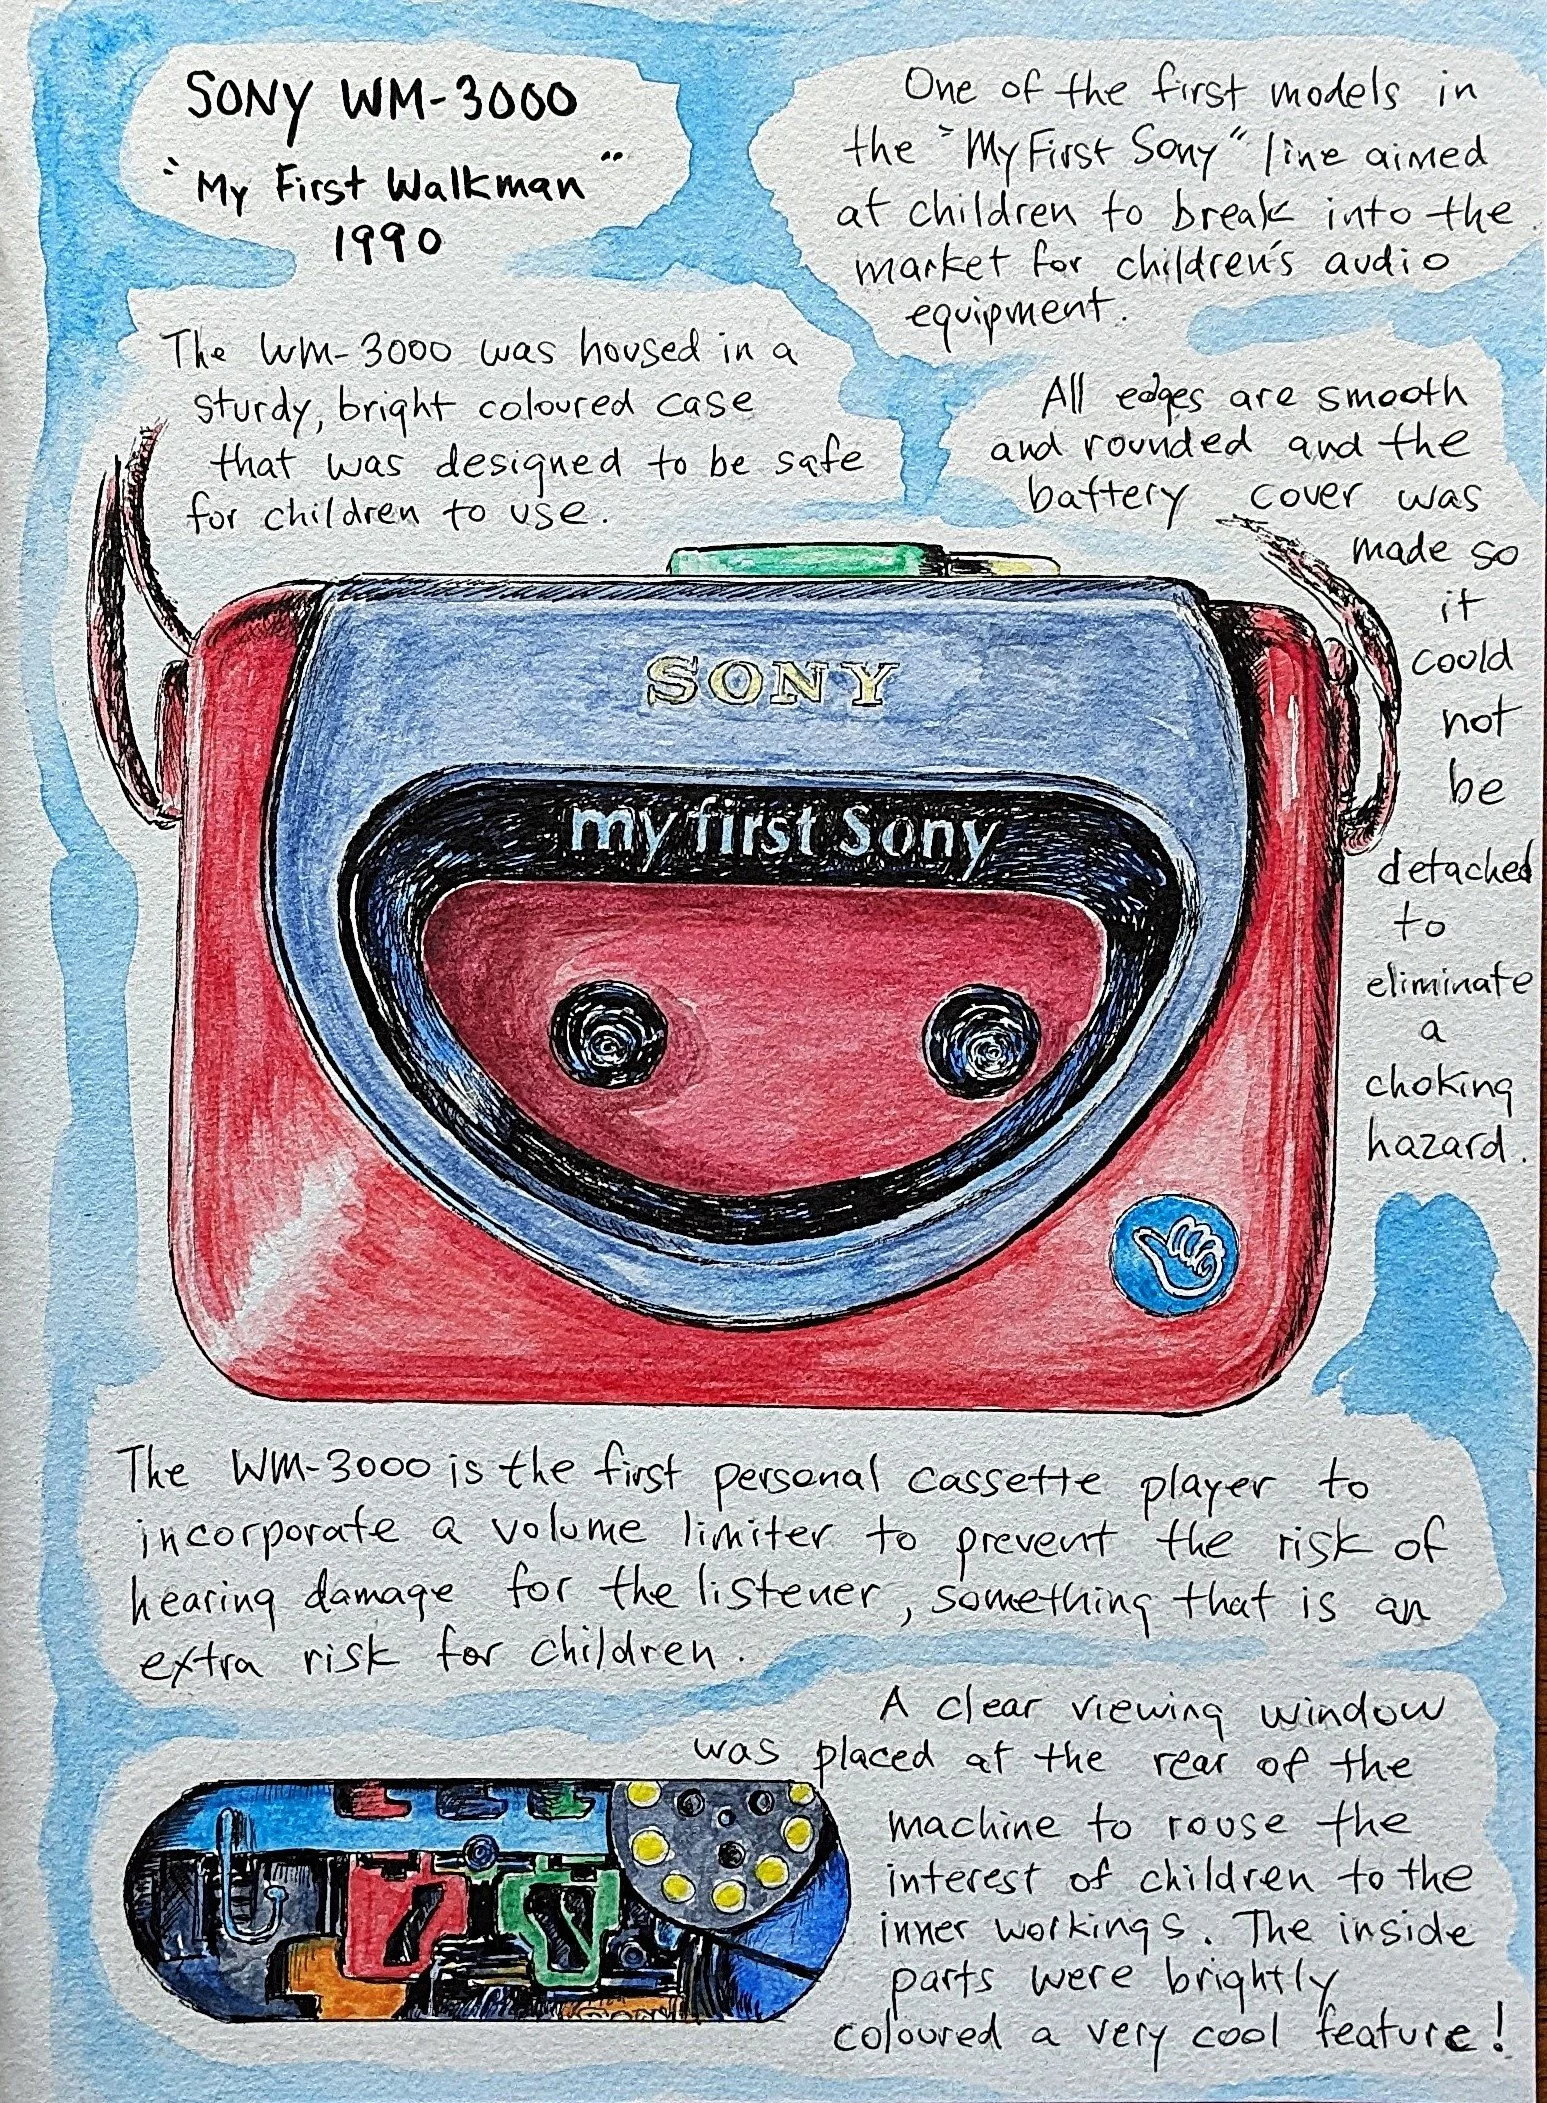 SONY WM-3000
"My First Walkman"
1990
One of the first models in
the "My First Sony" line aimed
at children to break into the
market for children's audio
equipment.
The WM-3000 was housed in a
sturdy, bright coloured case
that was designed to be safe
for children to use.
All edges are smooth
and rounded and the
battery cover was
made so
it
could
not
be
detached
to
eliminate
a
choking
hazard.
SONY
my first Sony
The WM-3000 is the first personal cassette player to
incorporate a volume limiter to prevent the risk of
hearing damage for the listener, something that is an
extra risk for children.
A clear viewing window
was placed at the rear of the
machine to rouse the
interest of children to the
inner workings. The inside
parts were brightly
coloured a very cool feature!